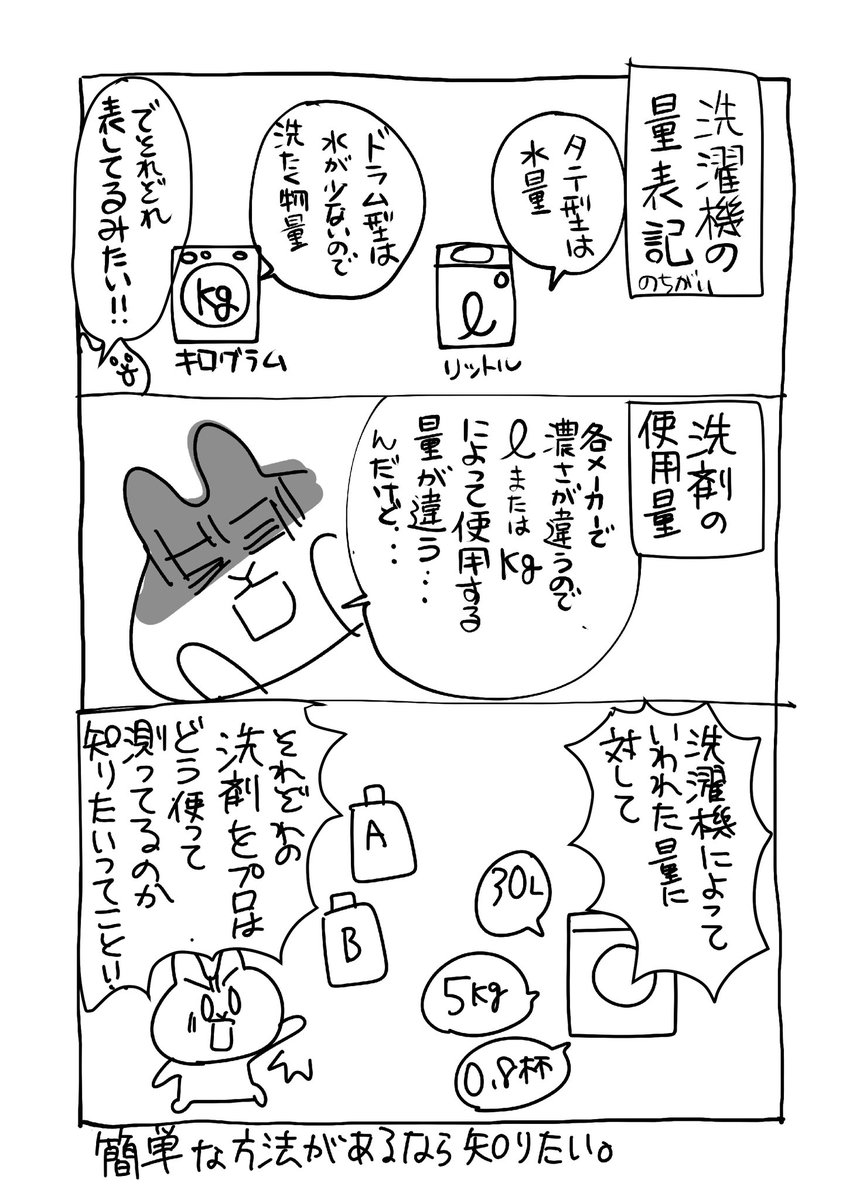 洗濯機の
量表記
のちがい
タテ型は
水量
ℓ
リットル
ドラム型は
水が少ないので
洗たく物量
kg
キログラム
でそれぞれ
表してるみたい!!
洗剤の
使用量
各メーカーで
濃さが違うので
ℓまたはkg
によって使用する
量が違う…
んだけど・・・
洗濯機によって
いわれた量に
対して
30L
5kg
0.8杯
A
B
それぞれの
洗剤をプロは
どう使って
測ってるのか
知りたいってこと!!
簡単な方法があるなら知りたい。